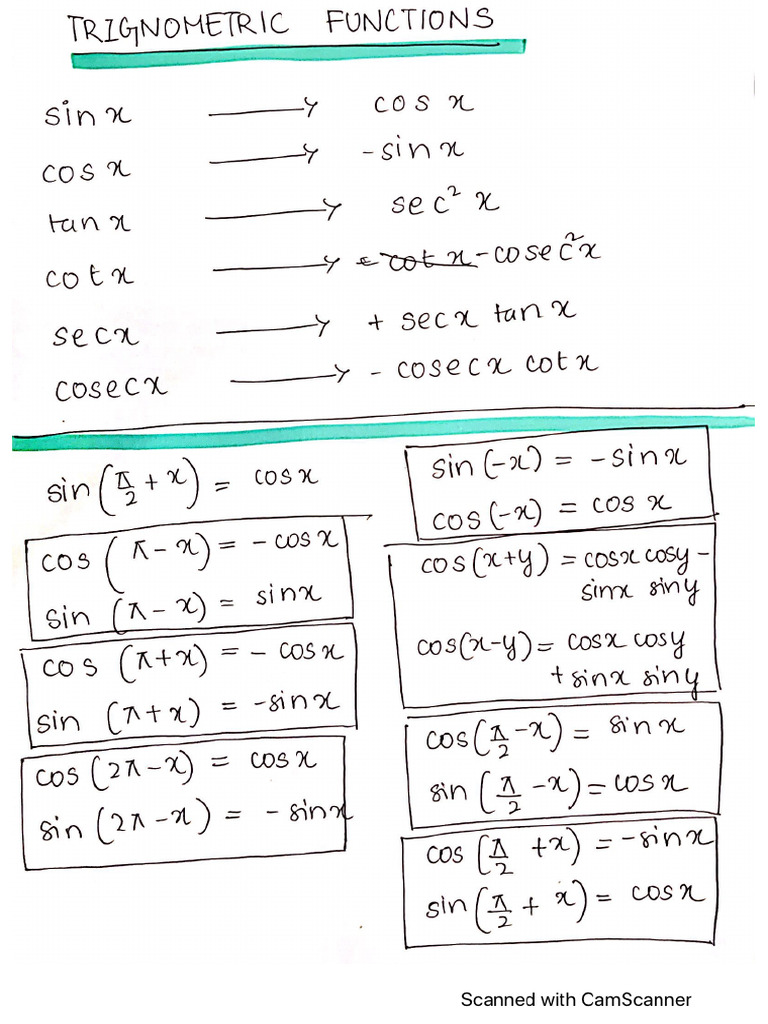 TRIGNOMETRIC FUNCTIONS
sin x → cos x
cos x → -sin x
tan x → sec² x
cot x → -cosec²x
secx → + secx tanx
cosecx → - cosecx cotx
sin(π/2 + x) = cosx
cos(π-x) = -cosx
sin(π-x) = sinx
cos(π+x) = - cosx
sin(π+x) = -sinx
cos(2π-x) = cosx
sin(2π-x) = - sinx
sin(-x) = -sinx
cos(-x) = cos x
cos(x+y) = cosx cosy -
sinx siny
cos(x-y) = cosx cosy
+ sinx siny
cos(π/2 -x) = sinx
sin(π/2 -x) = cosx
cos(π/2 +x) = -sinx
sin(π/2 + x) = cosx
Scanned with CamScanner